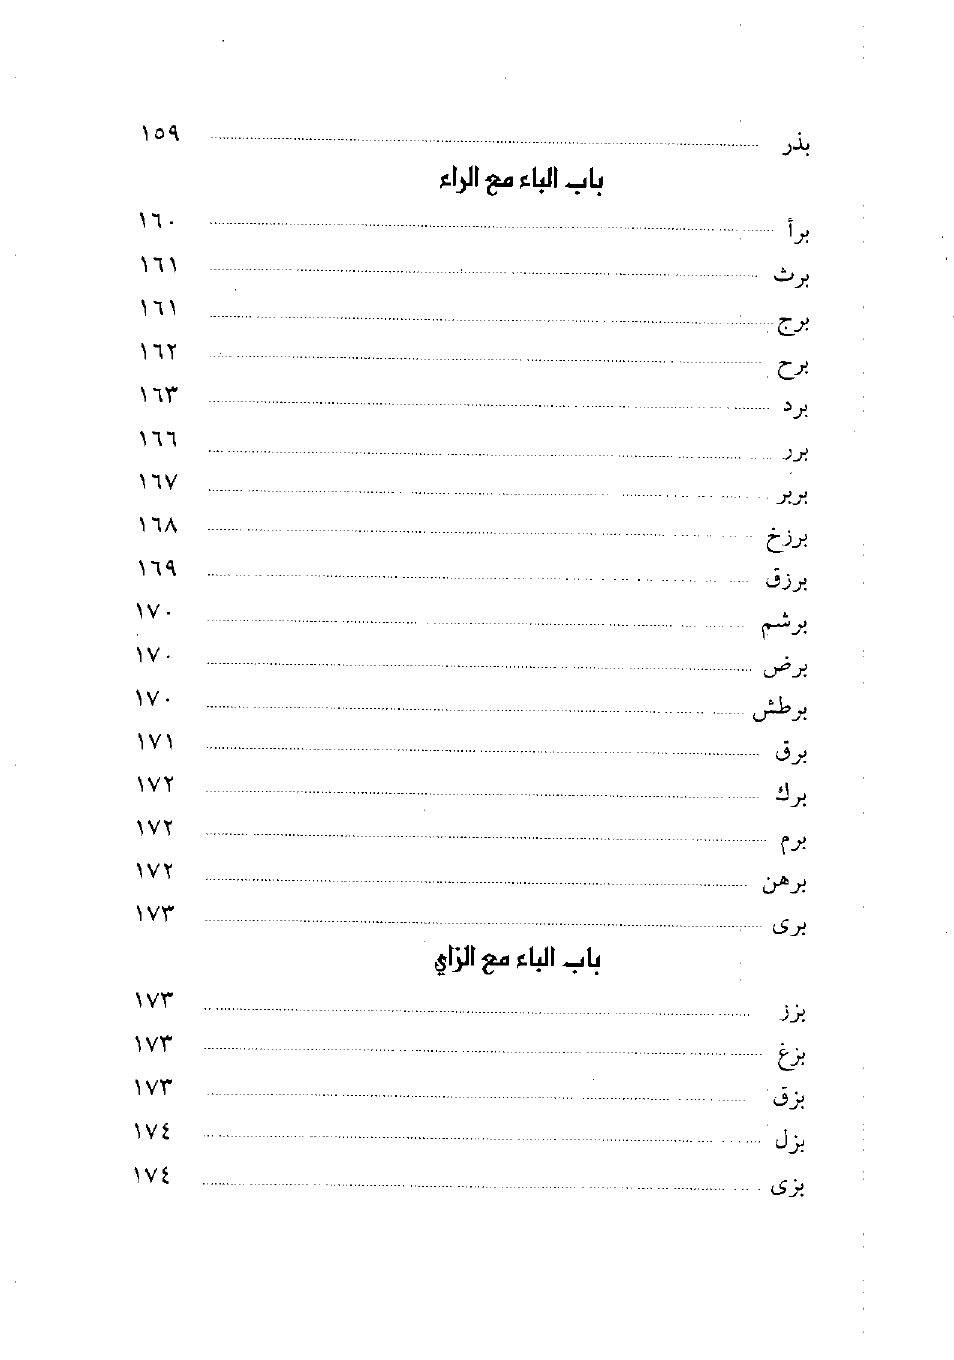 بذر ١٥٩
باب الباء مع الراء
برأ ١٦٠
برث ١٦١
برج ١٦١
برح ١٦٢
برد ١٦٣
برر ١٦٦
بربر ١٦٧
برزخ ١٦٨
برزق ١٦٩
برشم ١٧٠
برض ١٧٠
برطش ١٧٠
برق ١٧١
برك ١٧٢
برم ١٧٢
برهن ١٧٢
برى ١٧٣
باب الباء مع الزاي
بزز ١٧٣
بزغ ١٧٣
بزق ١٧٣
بزل ١٧٤
بزى ١٧٤